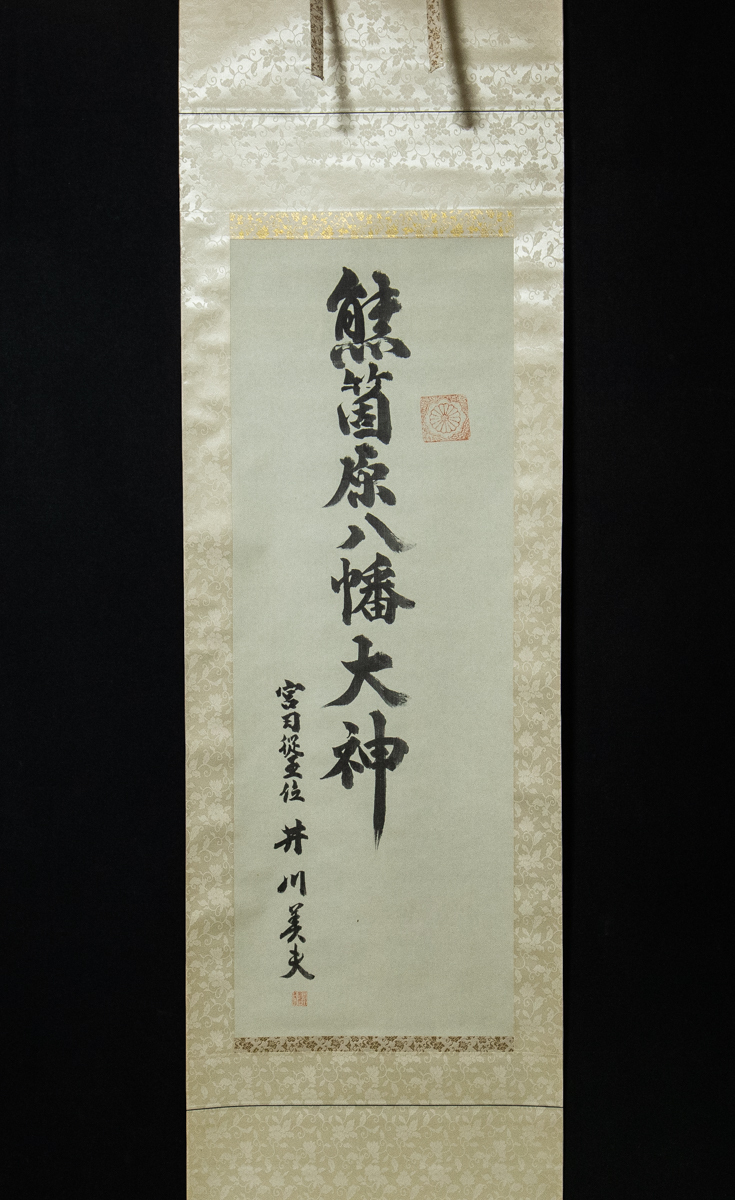 熊箇原八幡大神
宮司從五位 井川美夫